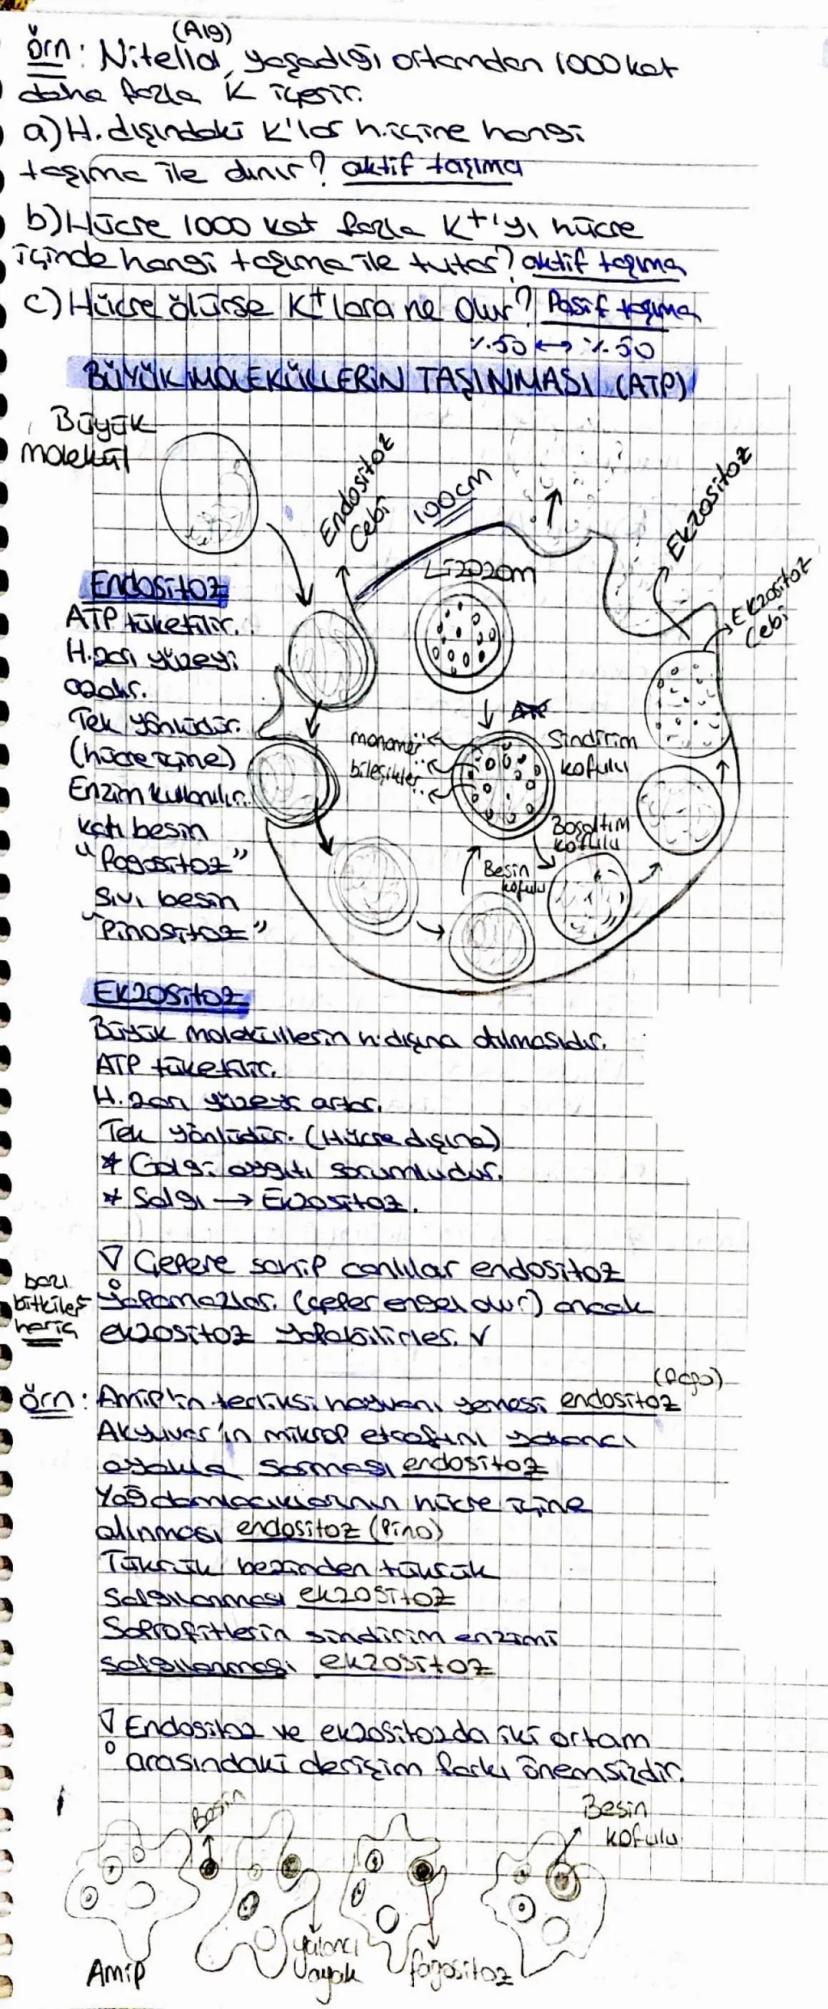 (Alg)
Örn: Nitella, yaşadığı ortamdan 1000 kat
daha fazla K içerir.
a) H. dışındaki K'lar h. içine hangi
taşıma ile alınır? aktif taşıma
b) Hücre 1000 kat fazla K+'yı hücre
içinde hangi taşıma ile tutar? aktif taşıma
c) Hücre ölürse K+lara ne olur? Pasif taşıma
%50 ↔ %50
BÜYÜK MOLEKÜLLERİN TAŞINMASI (ATP)
Büyük
molekül
Endositoz
Cebi
100cm
Ekzositoz
Lizozom
Ekzositoz
Cebi
Endositoz
ATP tüketilir.
H. zarı yüzeyi
azalır.
Tek yönlüdür.
(hücre içine)
Enzim kullanılır.
katı besin
"Fagositoz"
Sıvı besin
"Pinositoz"
monomer
bileşikler
ATP
Sindirim
kofulu
Boşaltım
kofulu
Besin
kofulu
Ekzositoz
Büyük moleküllerin h. dışına atılmasıdır.
ATP tüketilir.
H. zarı yüzeyi artar.
Tek yönlüdür. (Hücre dışına)
* Golgi aygıtı sorumludur.
* Salgı → Ekzositoz.
Çepere sahip canlılar endositoz
yapamazlar. (çeper engel olur) ancak
ekzositoz yapabilirler. √
bazı
bitkiler
hariç
(Fago)
Örn: Amip'in terliksi hayvanı yemesi endositoz
Akyuvar'ın mikrop etrafını yalancı
ayakla sarması endositoz
Yağ damlacıklarının hücre içine
alınması endositoz (Pino)
Tükrük bezinden tükrük
salgılanması ekzositoz
Saprofitlerin sindirim enzimi
salgılanması ekzositoz
Endositoz ve ekzositozda iki ortam
arasındaki derişim farkı önemsizdir.
Besin
Besin
kofulu
Amip
yalancı
ayak
fagositoz